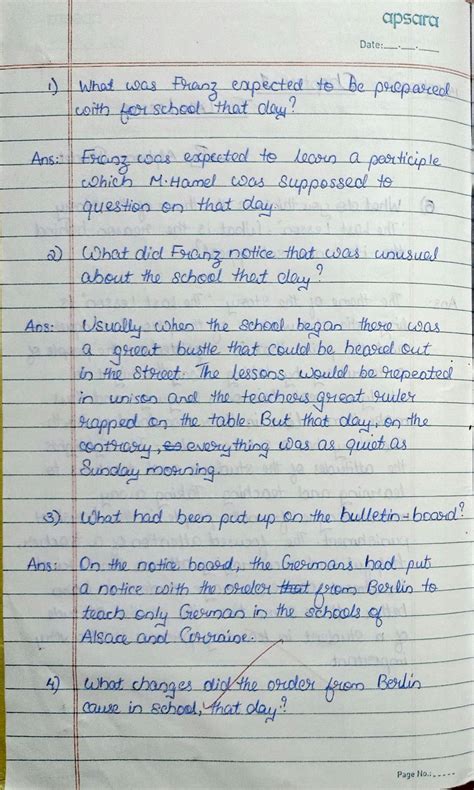 apsara
Date:__.__.__
1) What was Franz expected to be prepared
with for school that day?
Ans: Franz was expected to learn a participle
which M.Hamel was suppossed to
question on that day
2) What did Franz notice that was unusual
about the school that day?
Ans: Usually when the school began there was
a great bustle that could be heard out
in the street. The lessons would be repeated
in unison and the teachers great ruler
rapped on the table. But that day, on the
contrary, everything was as quiet as
Sunday morning.
3) What had been put up on the bulletin-board?
Ans: On the notice board, the Germans had put
a notice with the order that from Berlin to
teach only German in the schools of
Alsace and Corraine.
4) What changes did the order from Berlin
cause in school, that day?
Page No.:.....